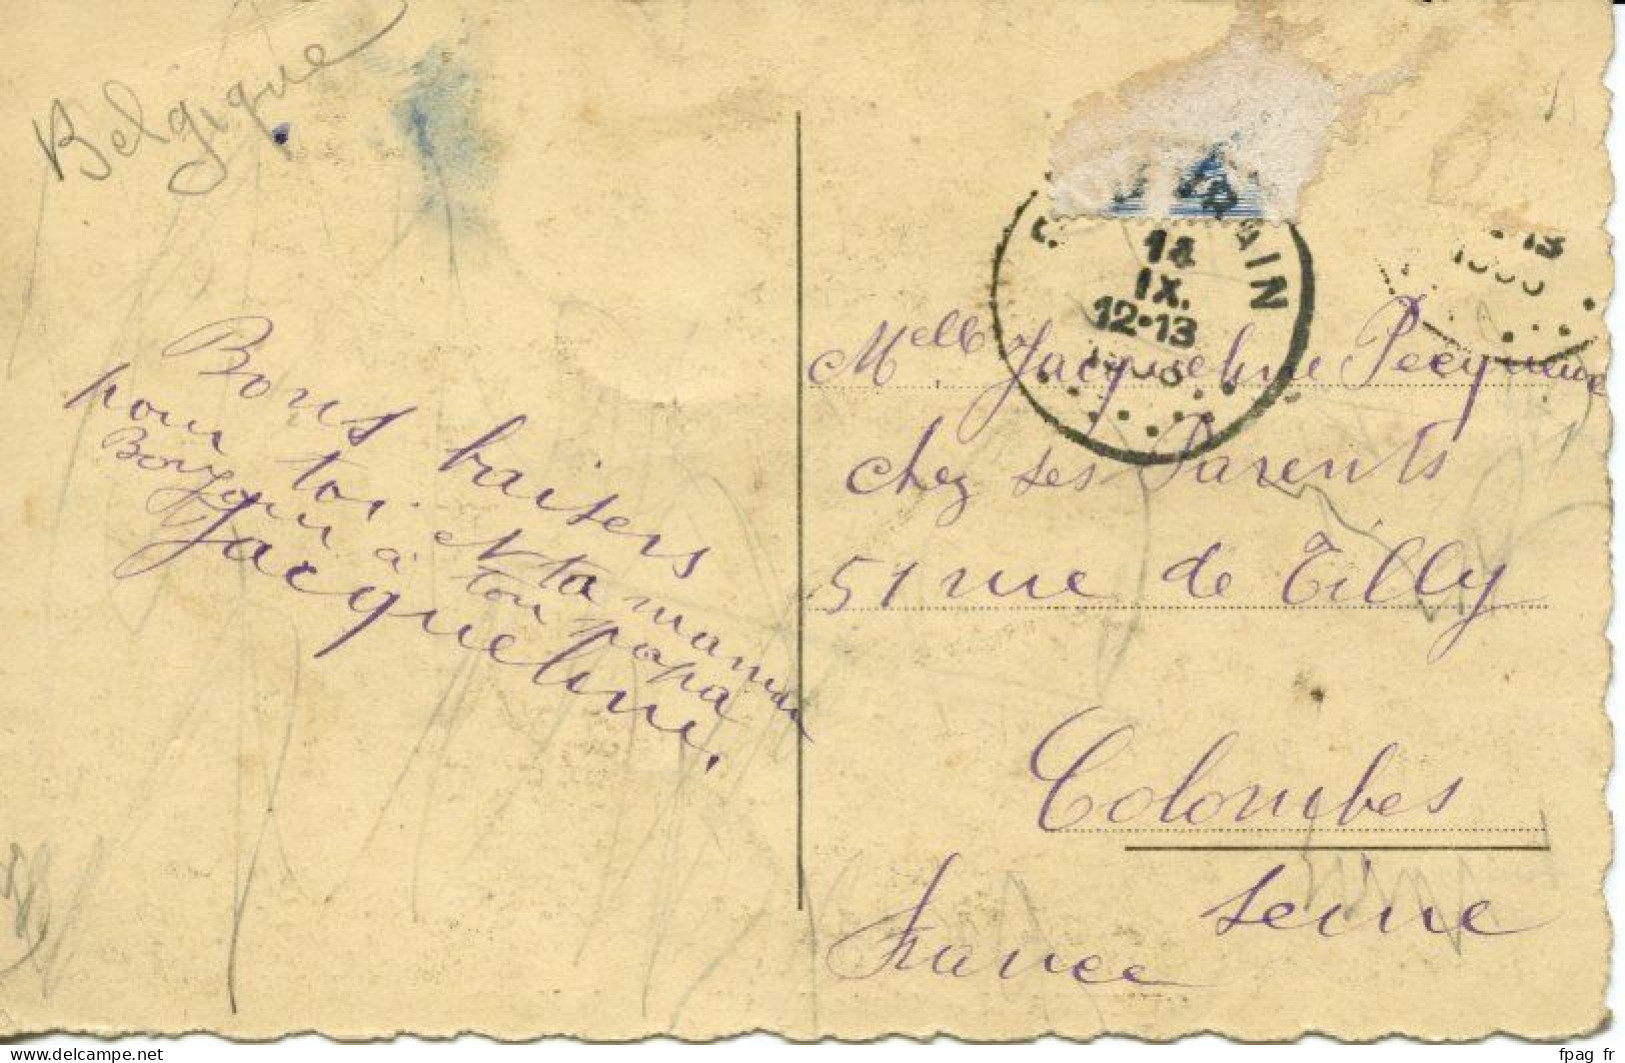 Belgique
Bons baisers
pour toi et ta maman
Bonjour à ton papa
Jacqueline.
14
IX.
12-13
Melle Jacqueline
chez ses Parents
51 rue de Tilly
Colombes
Seine
France
fpag_fr
https://www.delcampe.net